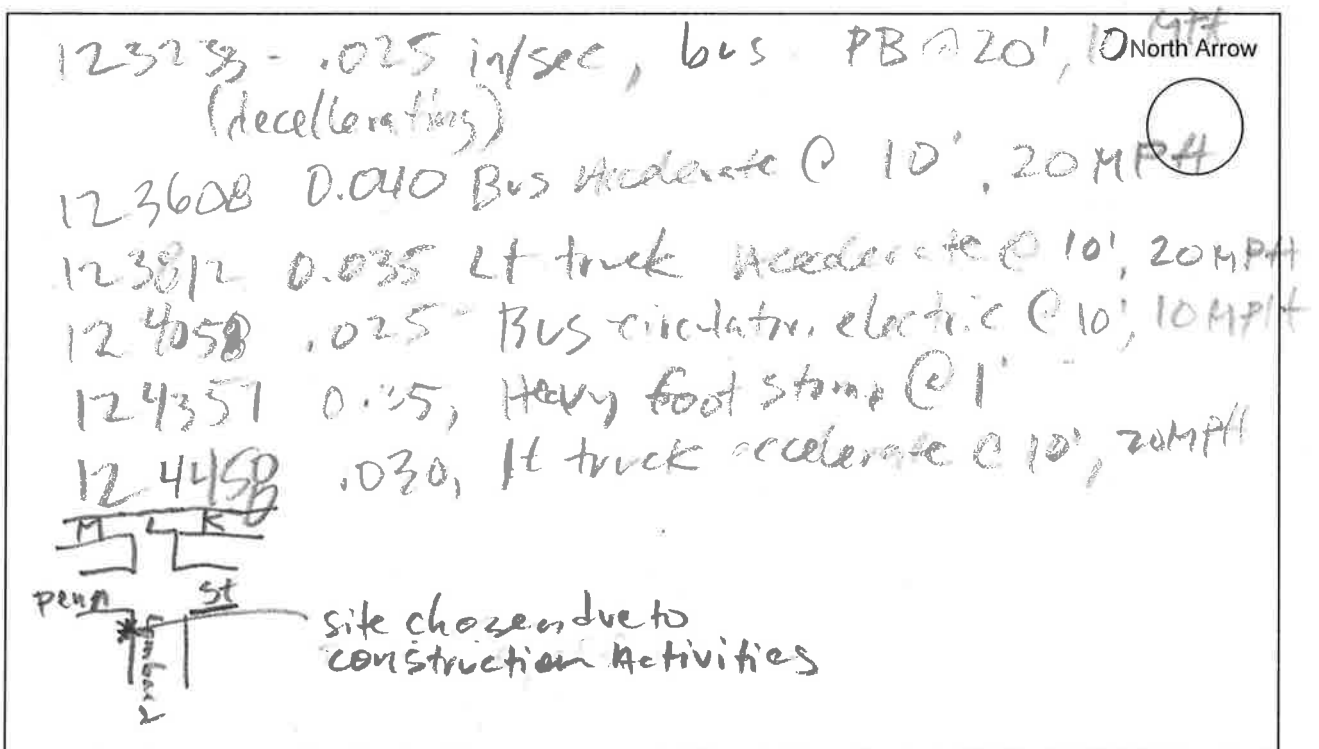 123233 - .025 in/sec, bus PB @ 20', 10 MPH
North Arrow
(decellerating)
123608 0.040 Bus Accelerate @ 10', 20 MPH
123812 0.035 Lt truck Accelerate @ 10', 20 MPH
124058 .025 Bus circulator, electric @ 10', 10 MPH
124357 Heavy foot stomp @ 1'
124458 .030, lt truck accelerate @ 10', 20 MPH
M L K
penn st
site chosen due to
construction Activities